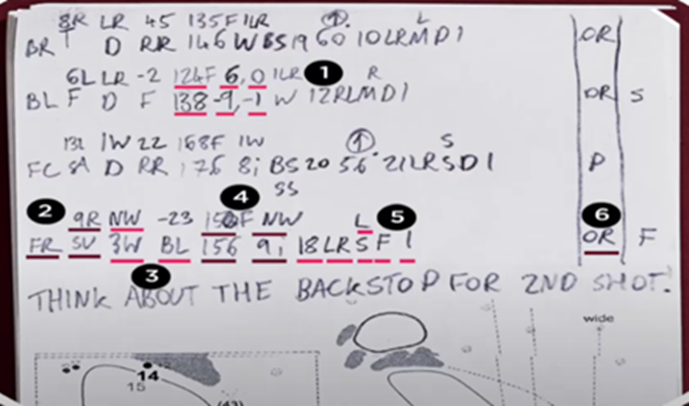 8R LR 45 135F 1LR ① L
BR T D RR 146 W BS19 60 10LRMD1 OR
6L LR -2 124F 6,0 1LR 1 R
BL F D F 138 -9,-1 W 12RLMD1 DR S
13L 1W 22 168F 1W ① S
FC SA D RR 176 8i BS20 56° 21LRSD1 P
4 SS
2 9R NW -23 F NW L 5 6
FR SU 3W BL 156 9i 18LRSF1 OR F
3
THINK ABOUT THE BACKSTOP FOR 2ND SHOT.
wide
14
15
(43)